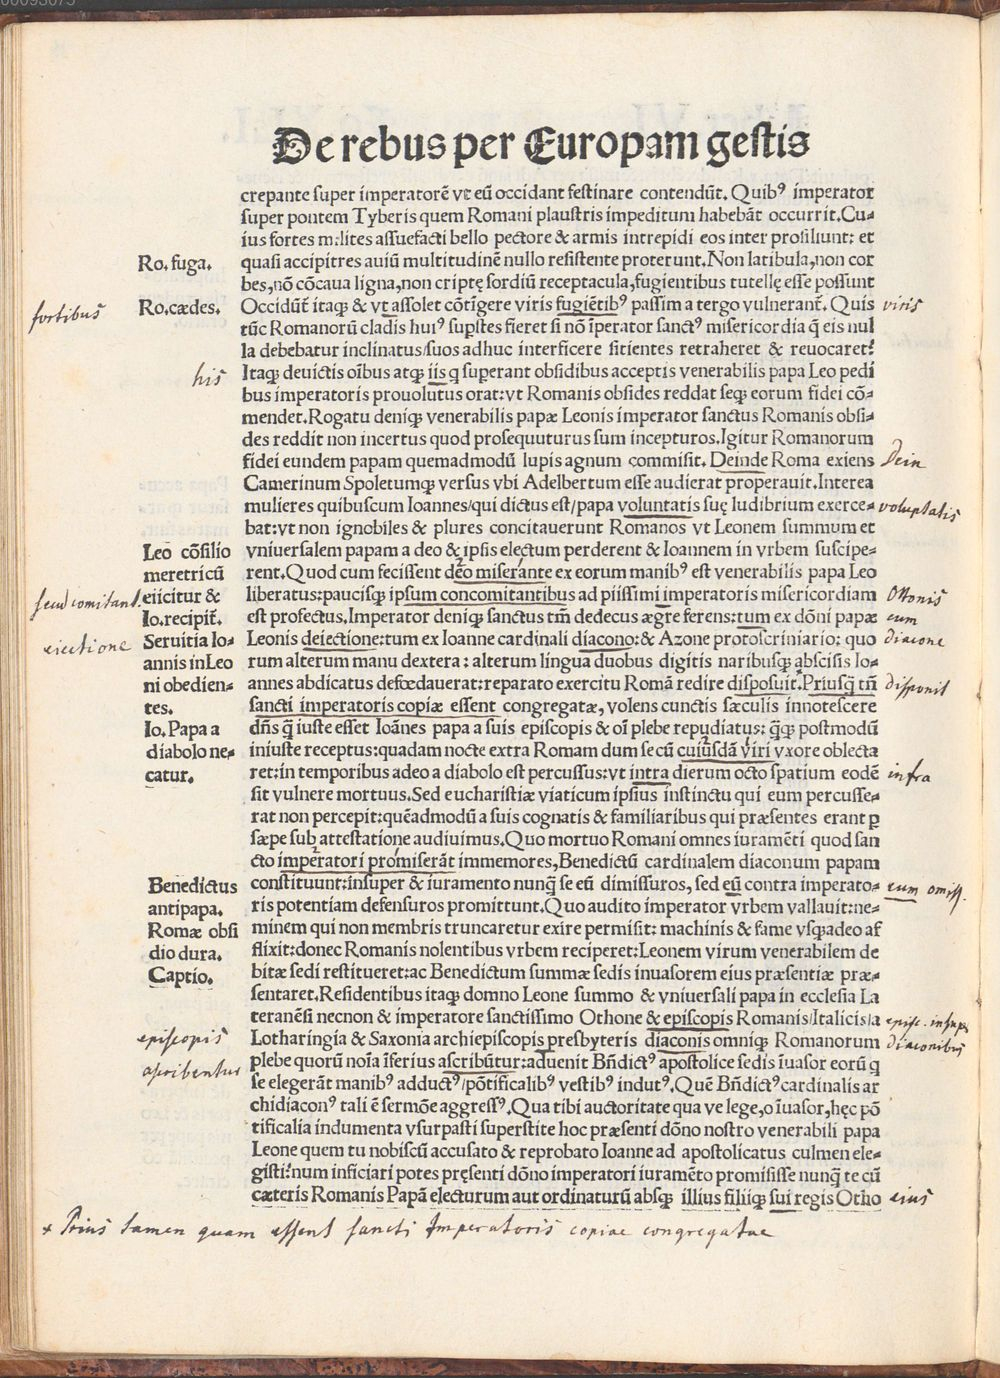 De rebus per Europam gestis
crepante super imperatorē vt eū occidant festinare contendūt. Quibꝰ imperator
super pontem Tyberis quem Romani plaustris impeditum habebāt occurrit. Cu-
ius fortes milites assuefacti bello pectore & armis intrepidi eos inter prosiliunt: et
Ro. fuga.
quasi accipitres auiū multitudinē nullo resistente proterunt. Non latibula, non cor
bes, nō cōcaua ligna, non criptę sordiū receptacula, fugientibus tutellę esse possunt
fortibus
Ro. cædes.
Occidūt itaqꝫ & vt assolet cōtigere viris fugiētibꝰ passim a tergo vulnerant. Quis
viris
tūc Romanorū cladis huiꝰ supstes fieret si nō īperator sanctꝰ misericordia q̄ eis nul
la debebatur inclinatus/suos adhuc interficere sitientes retraheret & reuocaret?
his
Itaqꝫ deuictis oībus atqꝫ iis q superant obsidibus acceptis venerabilis papa Leo pedi
bus imperatoris prouolutus orat: vt Romanis obsides reddat seqꝫ eorum fidei cō-
mendet. Rogatu deniqꝫ venerabilis papæ Leonis imperator sanctus Romanis obsi-
des reddit non incertus quod prosequuturus sum incepturos. Igitur Romanorum
fidei eundem papam quemadmodū lupis agnum commisit. Deinde Roma exiens
Dein
Camerinum Spoletumqꝫ versus vbi Adelbertum esse audierat properauit. Interea
mulieres quibuscum Ioannes/qui dictus est/papa voluntatis suę ludibrium exerce-
voluptatis
bat: vt non ignobiles & plures concitauerunt Romanos vt Leonem summum et
Leo cōsilio
vniuersalem papam a deo & ipsis electum perderent & Ioannem in vrbem suscipe-
meretricū
rent. Quod cum fecissent deo miserante ex eorum manibꝰ est venerabilis papa Leo
eiicitur &
liberatus: paucisqꝫ ipsum concomitantibus ad piissimi imperatoris misericordiam
Ottonis
Io. recipit.
est profectus. Imperator deniqꝫ sanctus tm̄ dedecus ægre ferens: tum ex dōni papæ
cum
eiectione
Seruitia Io-
Leonis deiectione: tum ex Ioanne cardinali diacono: & Azone protoscriniario: quo
diacone
annis in Leo
rum alterum manu dextera: alterum lingua duobus digitis naribusqꝫ abscisis Io-
ni obedien-
annes abdicatus defœdauerat: reparato exercitu Romā redire disposuit. Priusq̄ tn̄
disponit
tes.
sancti imperatoris copiæ essent congregatæ, volens cunctis sæculis innotescere
Io. Papa a
dn̄s q̄ iuste esset Ioānes papa a suis episcopis & oī plebe repudiatus: q̄qꝫ postmodū
diabolo ne-
iniuste receptus: quadam nocte extra Romam dum se cū cuiusdā viri vxore oblecta
catur.
ret: in temporibus adeo a diabolo est percussus: vt intra dierum octo spatium eodē
infra
sit vulnere mortuus. Sed eucharistiæ viaticum ipsius instinctu qui eum percusse-
rat non percepit: quēadmodū a suis cognatis & familiaribus qui præsentes erant p
sæpe sub attestatione audiuimus. Quo mortuo Romani omnes iuramēti quod san
cto imperatori promiserāt immemores, Benedictū cardinalem diaconum papam
Benedictus
constituunt: insuper & iuramento nunq̄ se eū dimissuros, sed eū contra imperato-
eum omiss.
antipapa.
ris potentiam defensuros promittunt. Quo audito imperator vrbem vallauit: ne-
Romæ obsi
minem qui non membris truncaretur exire permisit: machinis & fame vsqꝫadeo af
dio dura.
flixit: donec Romanis nolentibus vrbem reciperet: Leonem virum venerabilem de
Captio.
bitæ sedi restitueret: ac Benedictum summæ sedis inuasorem eius præsentiæ præ-
sentaret. Residentibus itaqꝫ domno Leone summo & vniuersali papa in ecclesia La
teranēsi necnon & imperatore sanctissimo Othone & episcopis Romanis/Italicis/a
episcopis
Lotharingia & Saxonia archiepiscopis presbyteris diaconis omniqꝫ Romanorum
diaconibus
ascribentur
plebe quorū noīa īferius ascribūtur: aduenit Bn̄dictꝰ apostolice sedis īuasor eorū q
se elegerāt manibꝰ adductꝰ/pōtificalibꝰ vestibꝰ indutꝰ. Quē Bn̄dictꝰ cardinalis ar
chidiaconꝰ tali ē sermōe aggressꝰ. Qua tibi auctoritate qua ve lege, o īuasor, hęc pō
tificalia indumenta vsurpasti superstite hoc præsenti dōno nostro venerabili papa
Leone quem tu nobiscū accusato & reprobato Ioanne ad apostolicatus culmen ele-
gisti? num inficiari potes pręsenti dōno imperatori iuramēto promisisse nunq̄ te cū
cæteris Romanis Papā electurum aut ordinaturū absqꝫ illius filiiqꝫ sui regis Otho
eius
+ Prius tamen quam essent sancti Imperatoris copiae congregatae